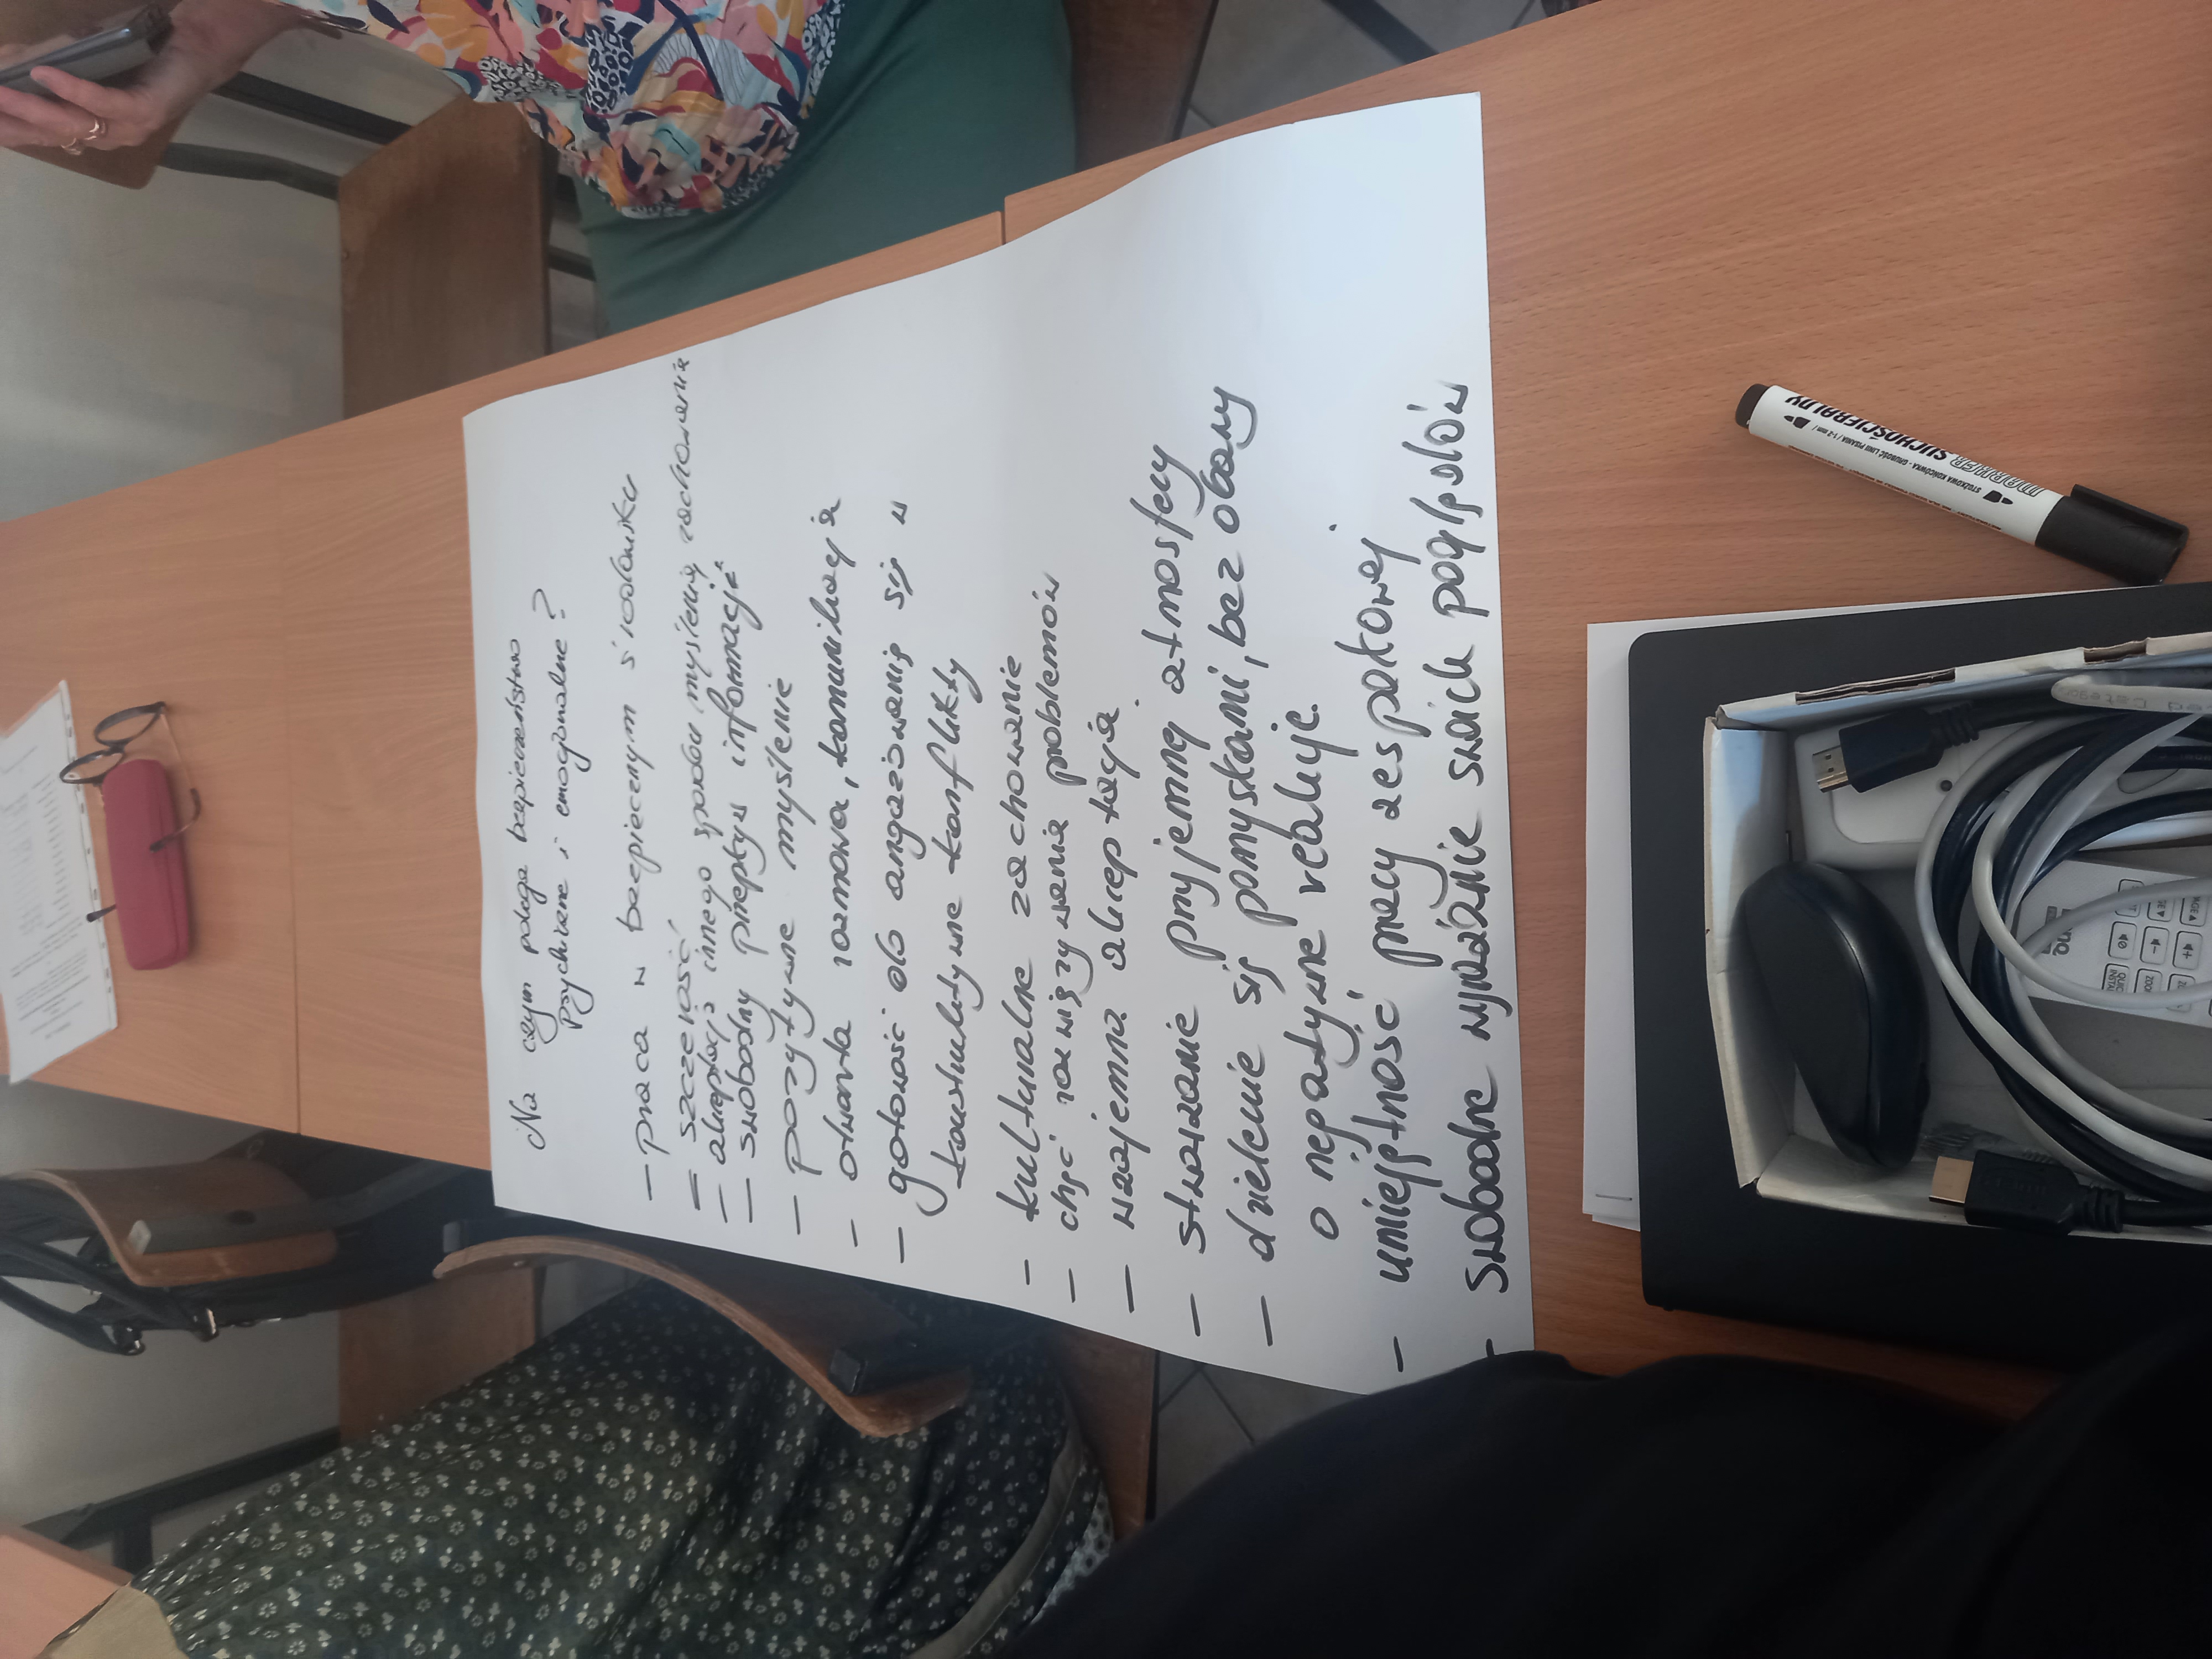 Na czym polega bezpieczeństwo
psychiczne i emocjonalne?
- praca w bezpiecznym środowisku
= szczerość
- akceptacja innego sposobu myślenia, zachowania
- swobodny przepływ informacji
- pozytywne myślenie
- otwarta rozmowa, komunikacja
- gotowość do angażowania się w
konstruktywne konflikty
- kulturalne zachowanie
- chęć rozwiązywania problemów
- wzajemna akceptacja.
- stwarzanie przyjemnej atmosfery
- dzielenie się pomysłami, bez obawy
o negatywne relacje.
- umiejętność pracy zespołowej
- swobodne wyrażanie swoich poglądów
MARKER SUCHOŚCIERALNY
STOŻKOWA KOŃCÓWKA - GRUBOŚĆ LINII PISANIA / 1-2 mm /